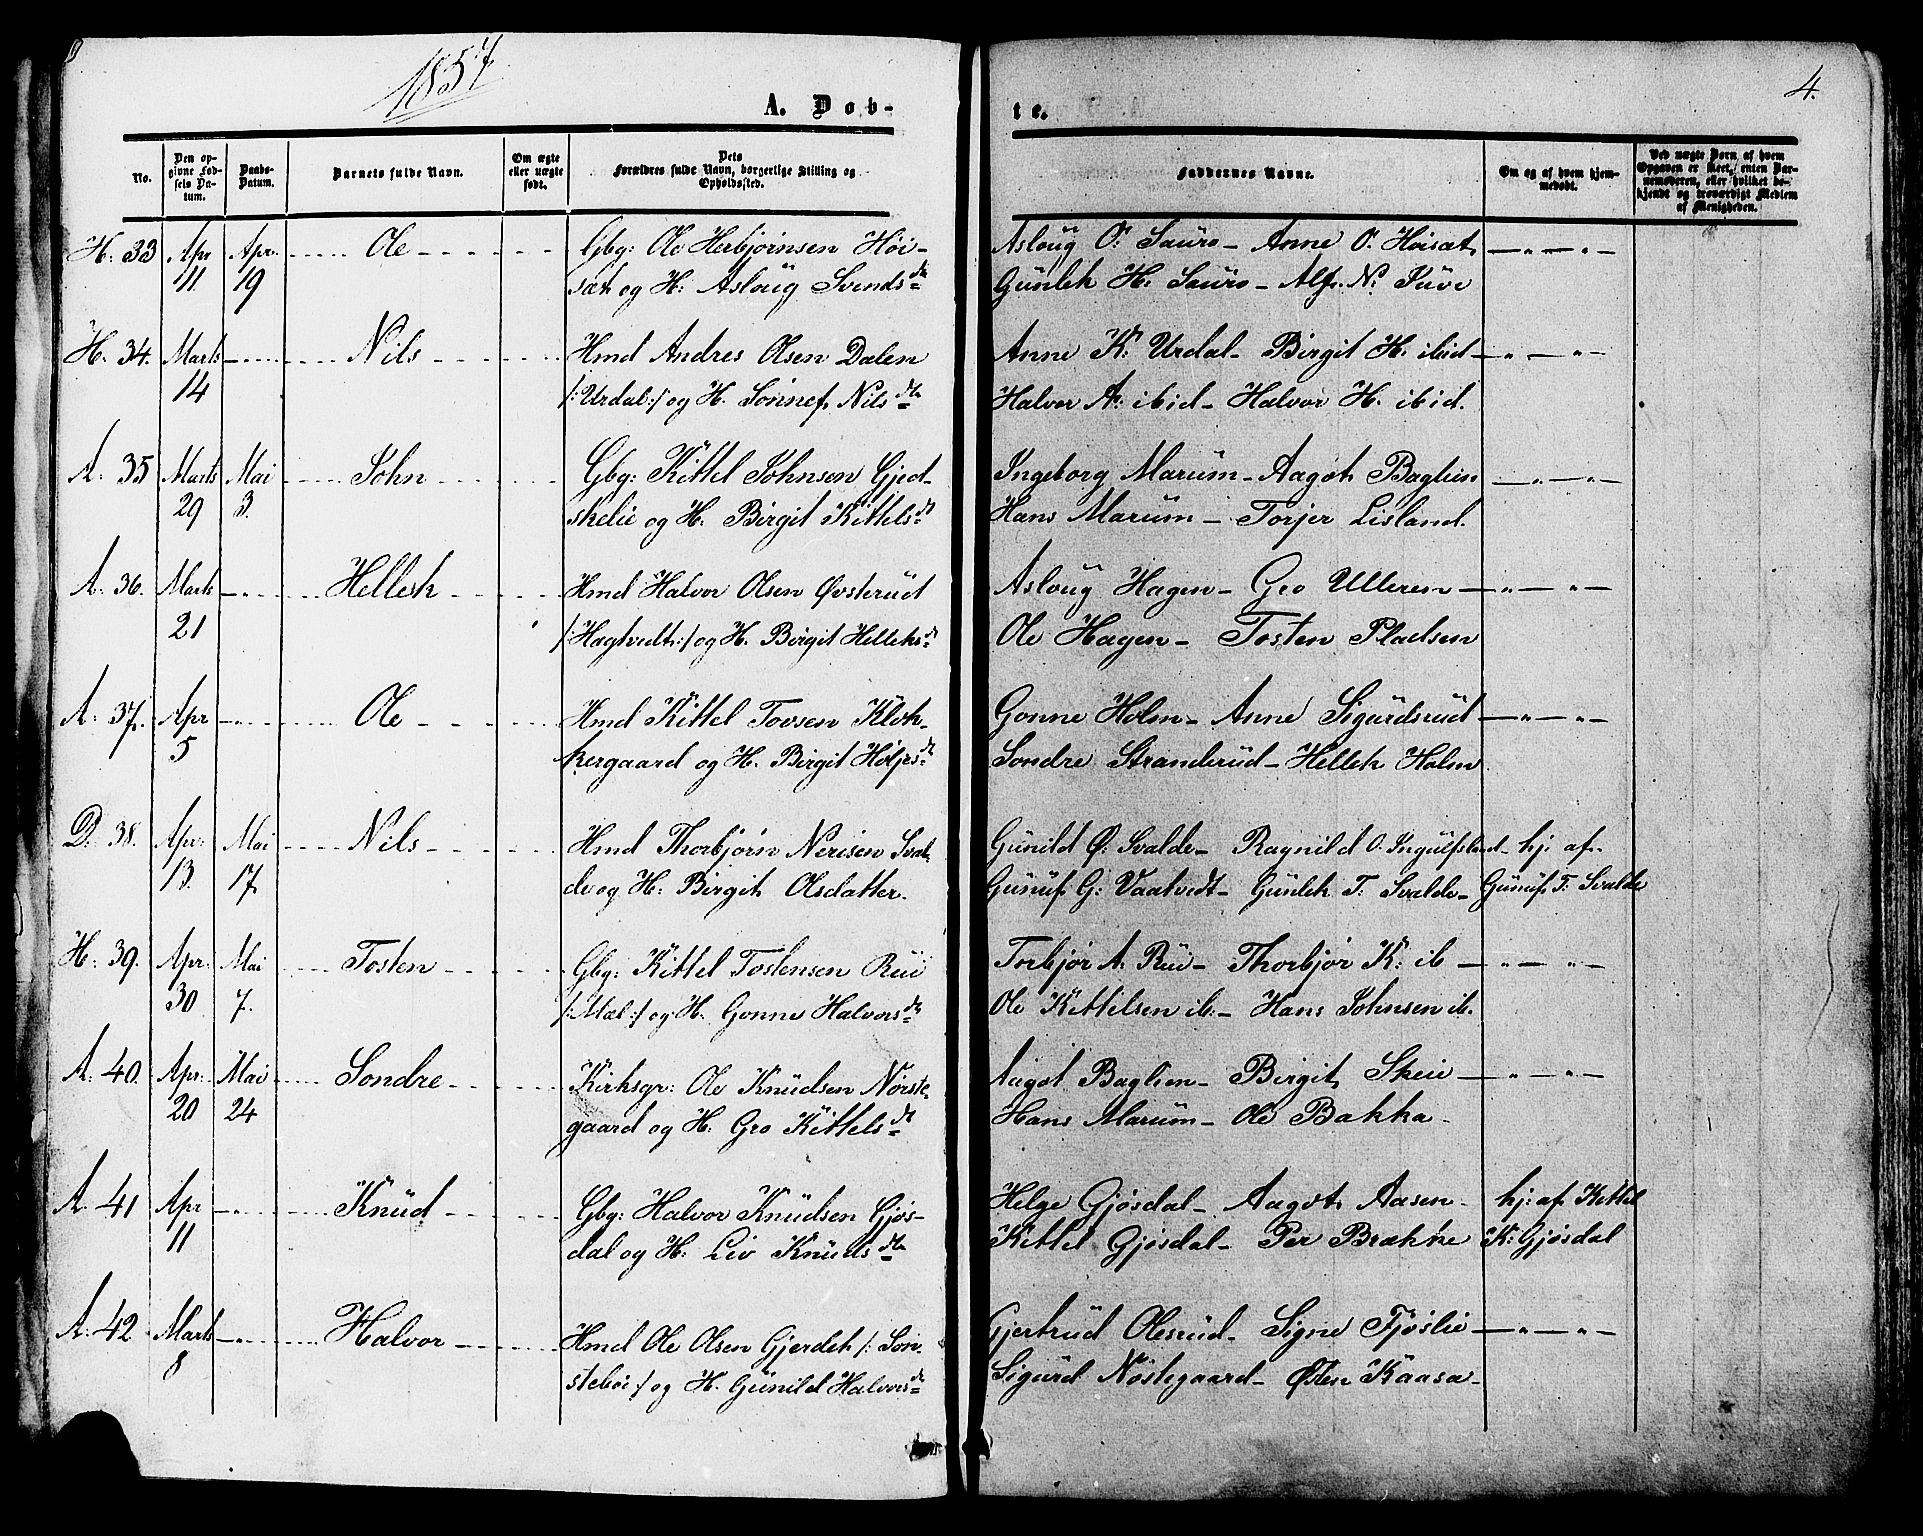 1857
4.
A. Døb-
te.
No.
Den op-
givne Fød-
sels Da-
tum.
Daabs-
Datum.
Barnets fulde Navn.
Om ægte
eller uægte
født.
Dets
Forældres fulde Navn, borgerlige Stilling og
Opholdssted.
Faddernes Navne.
Om og af hvem hjem-
medøbt.
Ved uægte Børn af hvem
Opgaven er skeet, enten Bar-
nemoderen, eller hvilket be-
kjendt og troværdigt Medlem
af Menigheden.
H. 33 Apr Apr. Ole Gbg: Ole Herbjørnsen Høi- Asloug O: Sauro - Anne O. Høisæt — „ — „ —
11. 19 sæt og H: Asloug Svendsdtr Gunlek H: Sauro - Alf. N: Juve
H. 34. Marts — „ Nils Hmd Andres Olsen Dalen Anne K: Urdal - Birgit H. ibid — „ — „ —
14 /:Urdal:/ og H. Sønnef. Nilsdtr Halvor A: ibid - Halvor H. ibid.
A. 35 Marts Mai John Gbg: Kittel Johnsen Gjed- Ingeborg Marum - Aagot Baglien — „ — „ —
29 3. skelie og H. Birgit Kittelsdtr Hans Marum - Torjer Lisland.
A. 36. Marts — „ Hellek Hmd Halvor Olsen Øvsterud Asloug Hagen - Gro Ulleren — „ — „ —
21 /:Hagtvedt:/ og H. Birgit Helleksdtr Ole Hagen - Tosten Pladsen
A. 37. Apr — „ Ole Hmd Kittel Tovsen Klok- Gonne Holm - Anne Sigurdsrud — „ — „ —
5 kergaard og H. Birgit Høljesdtr Sondre Stranderud - Hellek Holm
D. 38. Apr: Mai Nils Hmd Thorbjørn Nerisen Sval- Gunild Ø: Svalde - Ragnild O. Ingulfsland - hj: af
13. 17. de og H: Birgit Olsdatter. Gunuf. G: Vaatvedt - Gunlek T: Svalde - Gunuf T: Svalde
H. 39. Apr. Mai Tosten Gbg: Kittel Tostensen Rui Torbjør A. Rui - Thorbjør K: ib — „ — „ —
30 7. /:Mæl:/ og H. Gonne Halvorsdtr Ole Kittilsen ib: - Hans Johnsen ib.
A: 40. Apr: Mai Sondre Kirksgr: Ole Knudsen Nørste- Aagot Baglien - Birgit Skeie — „ — „ —
20 24 gaard og H: Gro Kittelsdtr Hans Marum - Ole Bakka -
A. 41 Apr — „ Knud Gbg: Halvor Knudsen Gjøs- Helge Gjøsdal - Aagot Aasen. hj: af Kittel
11 dal og H: Liv Knudsdtr Kittel Gjøsdal - Per Brække K: Gjøsdal
A. 42 Marts — „ Halvor Hmd Ole Olsen Gjerdet /: Søn- Gjertrud Olesrud - Signe Fjøslie — „ — „ —
8 stebøi:/ og H. Gunild Halvorsdtr Sigurd Nøstegaard - Østen Kaasa -